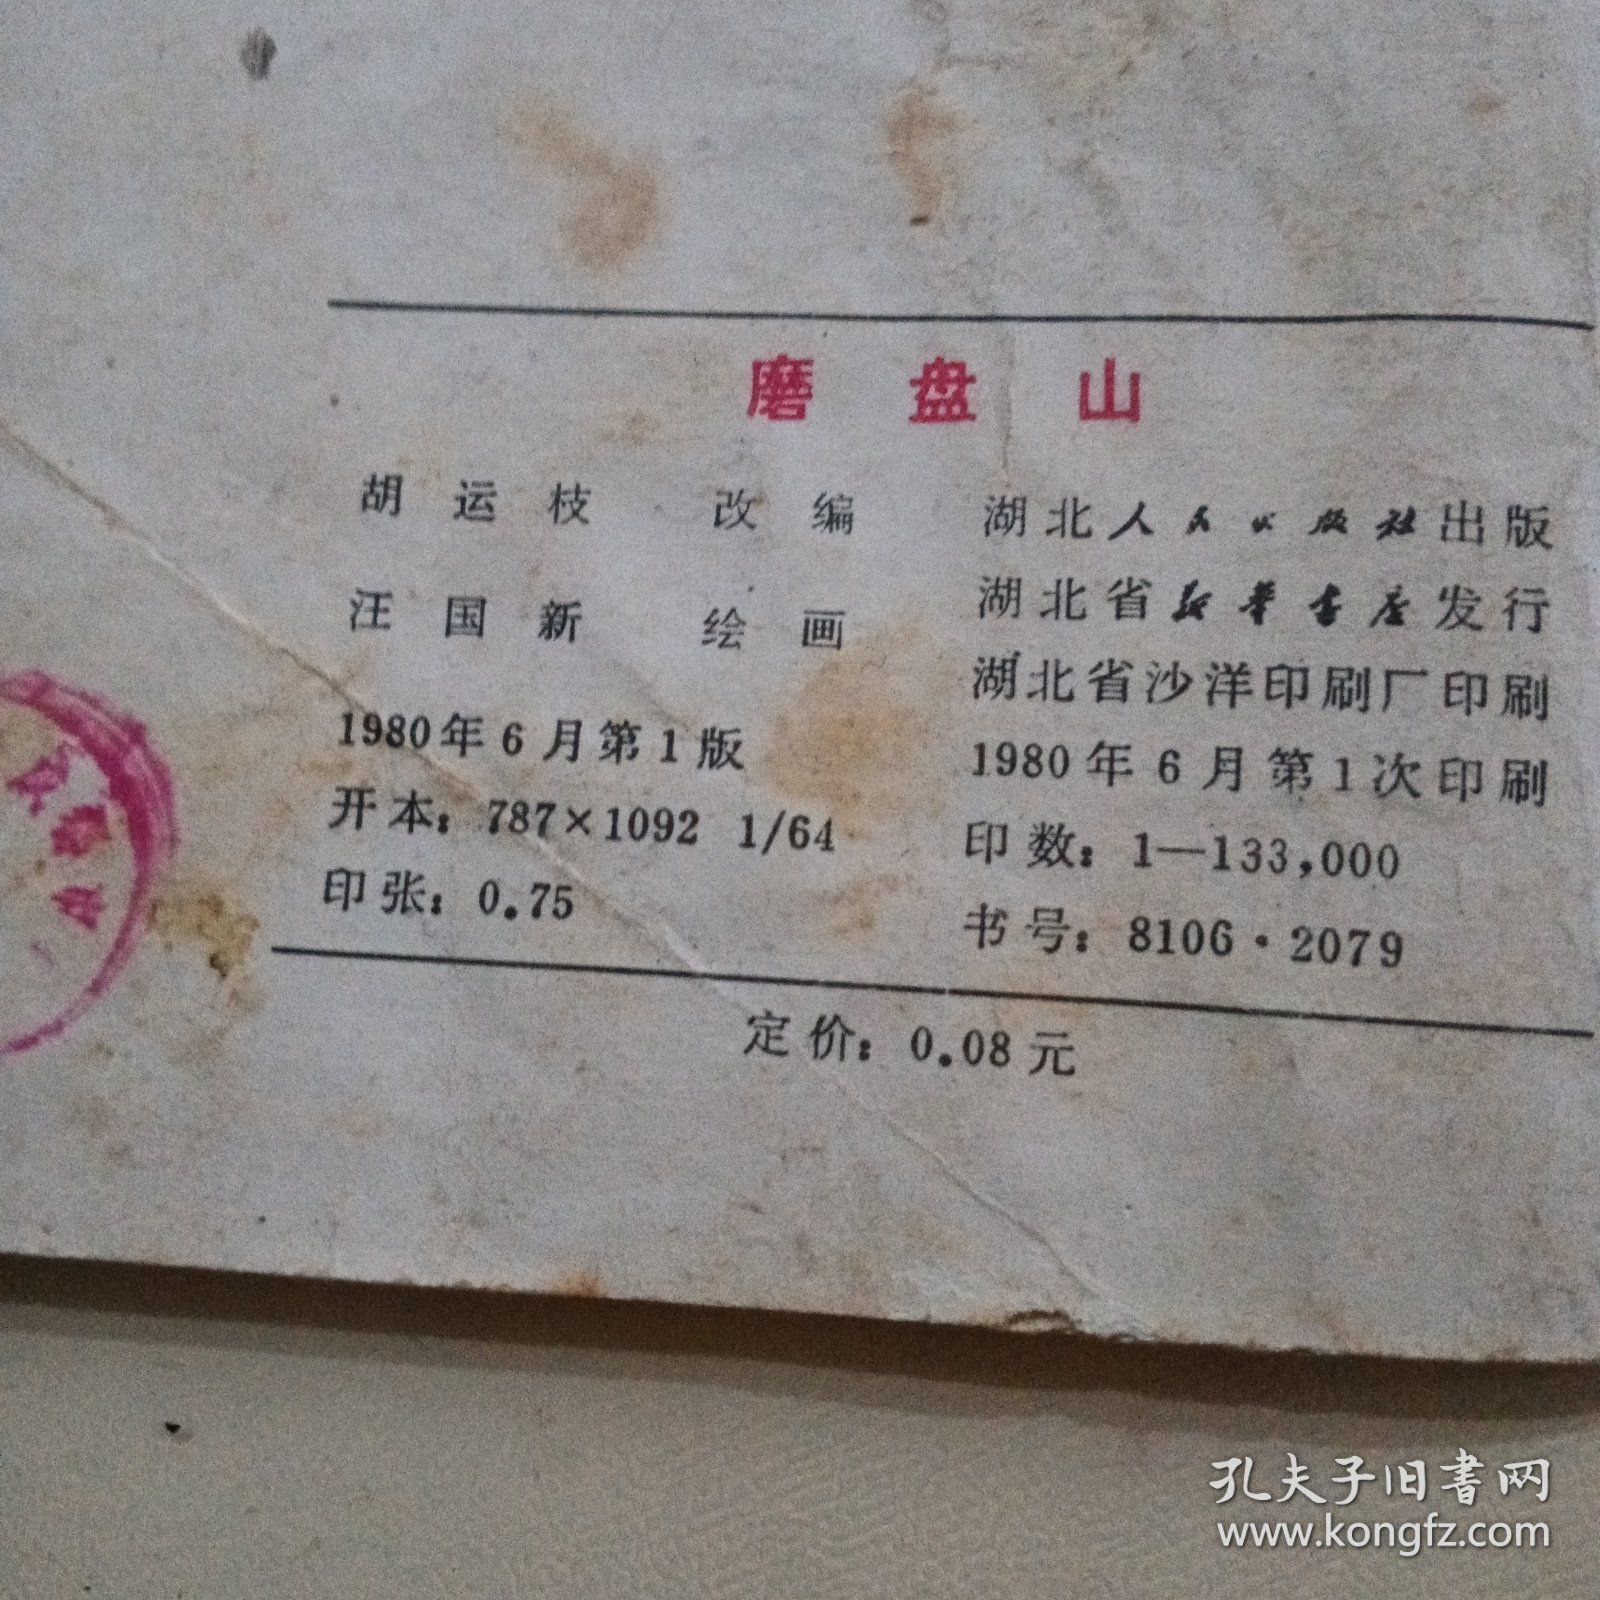 磨盘山
胡运枝 改编
汪国新 绘画
1980年6月第1版
开本：787×1092 1/64
印张：0.75
湖北人民出版社出版
湖北省新华书店发行
湖北省沙洋印刷厂印刷
1980年6月第1次印刷
印数：1—133,000
书号：8106·2079
定价：0.08元
孔夫子旧书网
www.kongfz.com